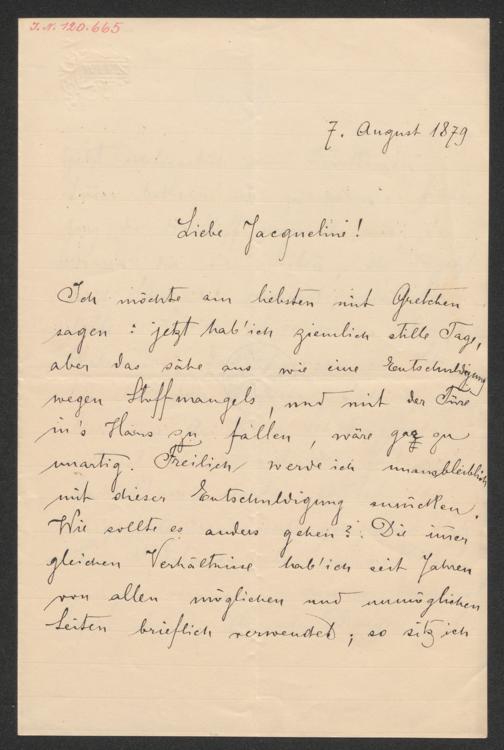 J. N. 120.665
7. August 1879
Liebe Jacqueline!
Ich möchte am liebsten mit Gretchen
sagen: jetzt hab' ich ziemlich stille Tage,
aber das sähe aus wie eine Entschuldigung
wegen Stoffmangels, und mit der Türe
in's Haus zu fallen, wäre gar zu
unartig. Freilich werde ich unausbleiblich
mit dieser Entschuldigung anrücken.
Wie sollte es anders gehen? Die
gleichen Verhältnisse hab' ich seit Jahren
von allen möglichen und unmöglichen
Seiten brieflich verwendet; so sitz ich